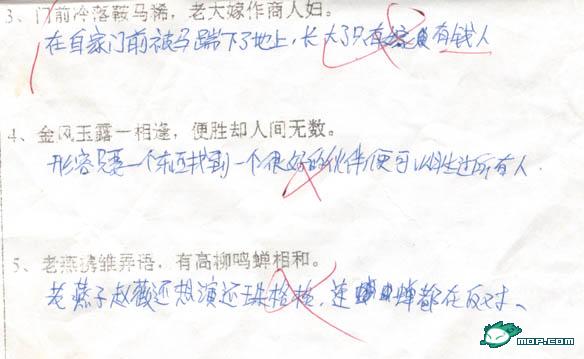 3、门前冷落鞍马稀，老大嫁作商人妇。
在自家门前被马踹下了地上，长大了只有 有钱人
4、金风玉露一相逢，便胜却人间无数。
形容只要一个东西找到一个很好的伙伴便可以胜过所有人.
5、老燕携雏弄语，有高柳鸣蝉相和。
老燕子赵薇还想演还珠格格，连 蝉都在反对、
MOP.COM